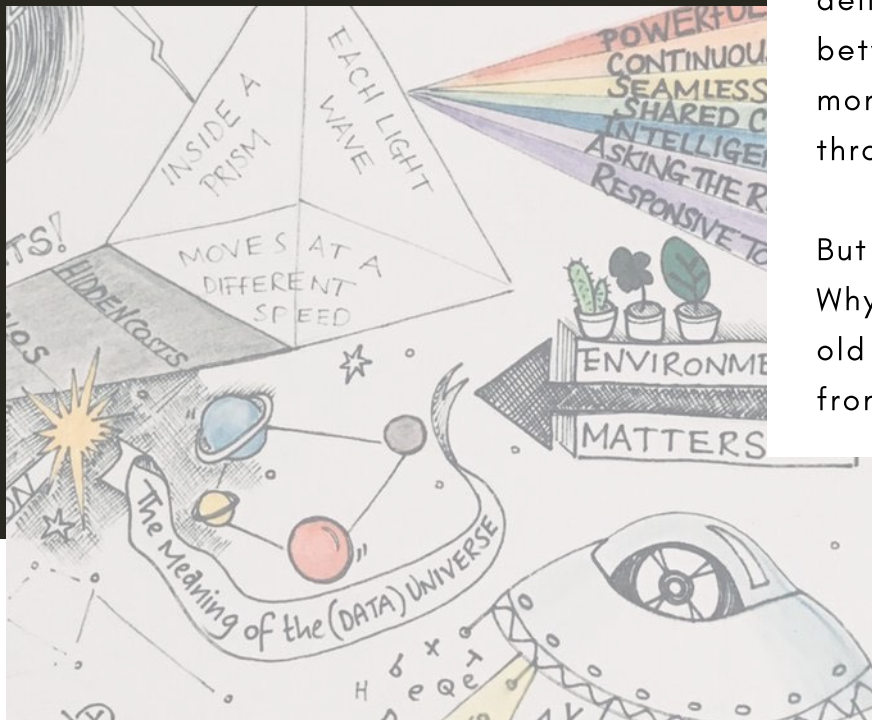 INSIDE A
PRISM
EACH LIGHT
WAVE
MOVES AT A
DIFFERENT
SPEED
POWERFUL
CONTINUOU
SEAMLESS
SHARED C
INTELLIGE
ASKING THE R
RESPONSIVE TO
TS!
HIDDEN COSTS
ENVIRONME
MATTERS
The Meaning of the (DATA) UNIVERSE
b x
H e Q e T
bet
mor
thro
But
Why
old
from